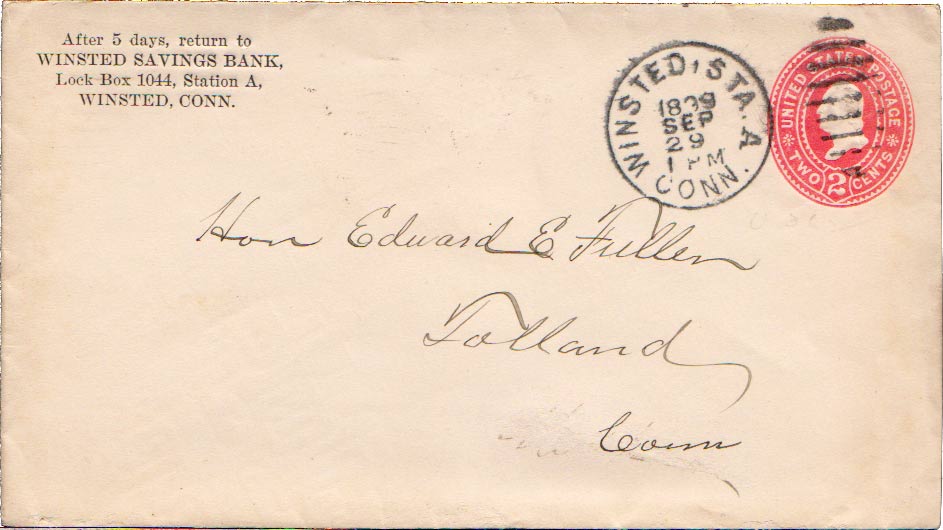 After 5 days, return to
WINSTED SAVINGS BANK,
Lock Box 1044, Station A,
WINSTED, CONN.
WINSTED, STA. A
SEP
29
1 PM
CONN.
UNITED STATES POSTAGE
TWO 2 CENTS
Hon Edward E Fuller
Tolland
Conn